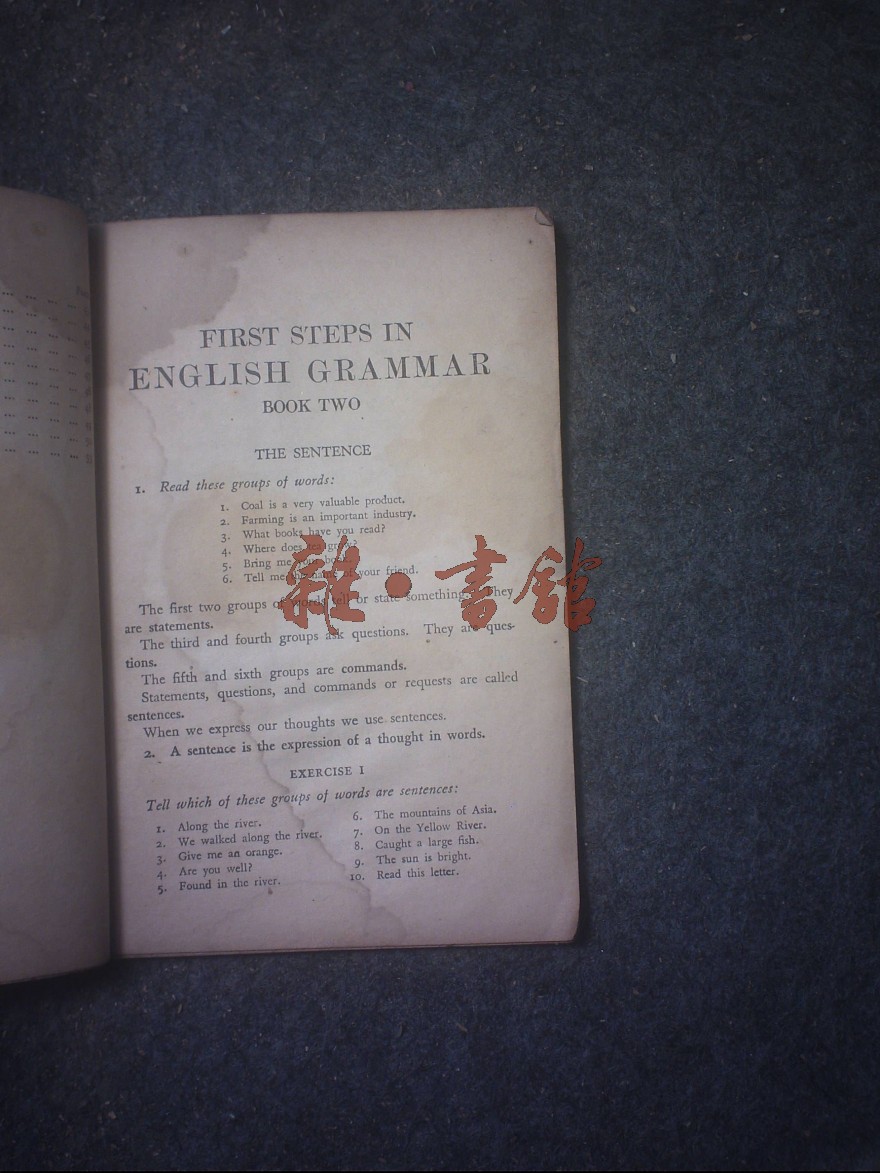 FIRST STEPS IN
ENGLISH GRAMMAR
BOOK TWO
THE SENTENCE
1. Read these groups of words:
1. Coal is a very valuable product.
2. Farming is an important industry.
3. What books have you read?
4. Where does tea grow?
5. Bring me your book.
6. Tell me the name of your friend.
The first two groups of words tell or state something. They
are statements.
The third and fourth groups ask questions. They are ques-
tions.
The fifth and sixth groups are commands.
Statements, questions, and commands or requests are called
sentences.
When we express our thoughts we use sentences.
2. A sentence is the expression of a thought in words.
EXERCISE I
Tell which of these groups of words are sentences:
1. Along the river.
2. We walked along the river.
3. Give me an orange.
4. Are you well?
5. Found in the river.
6. The mountains of Asia.
7. On the Yellow River.
8. Caught a large fish.
9. The sun is bright.
10. Read this letter.
雜·書館